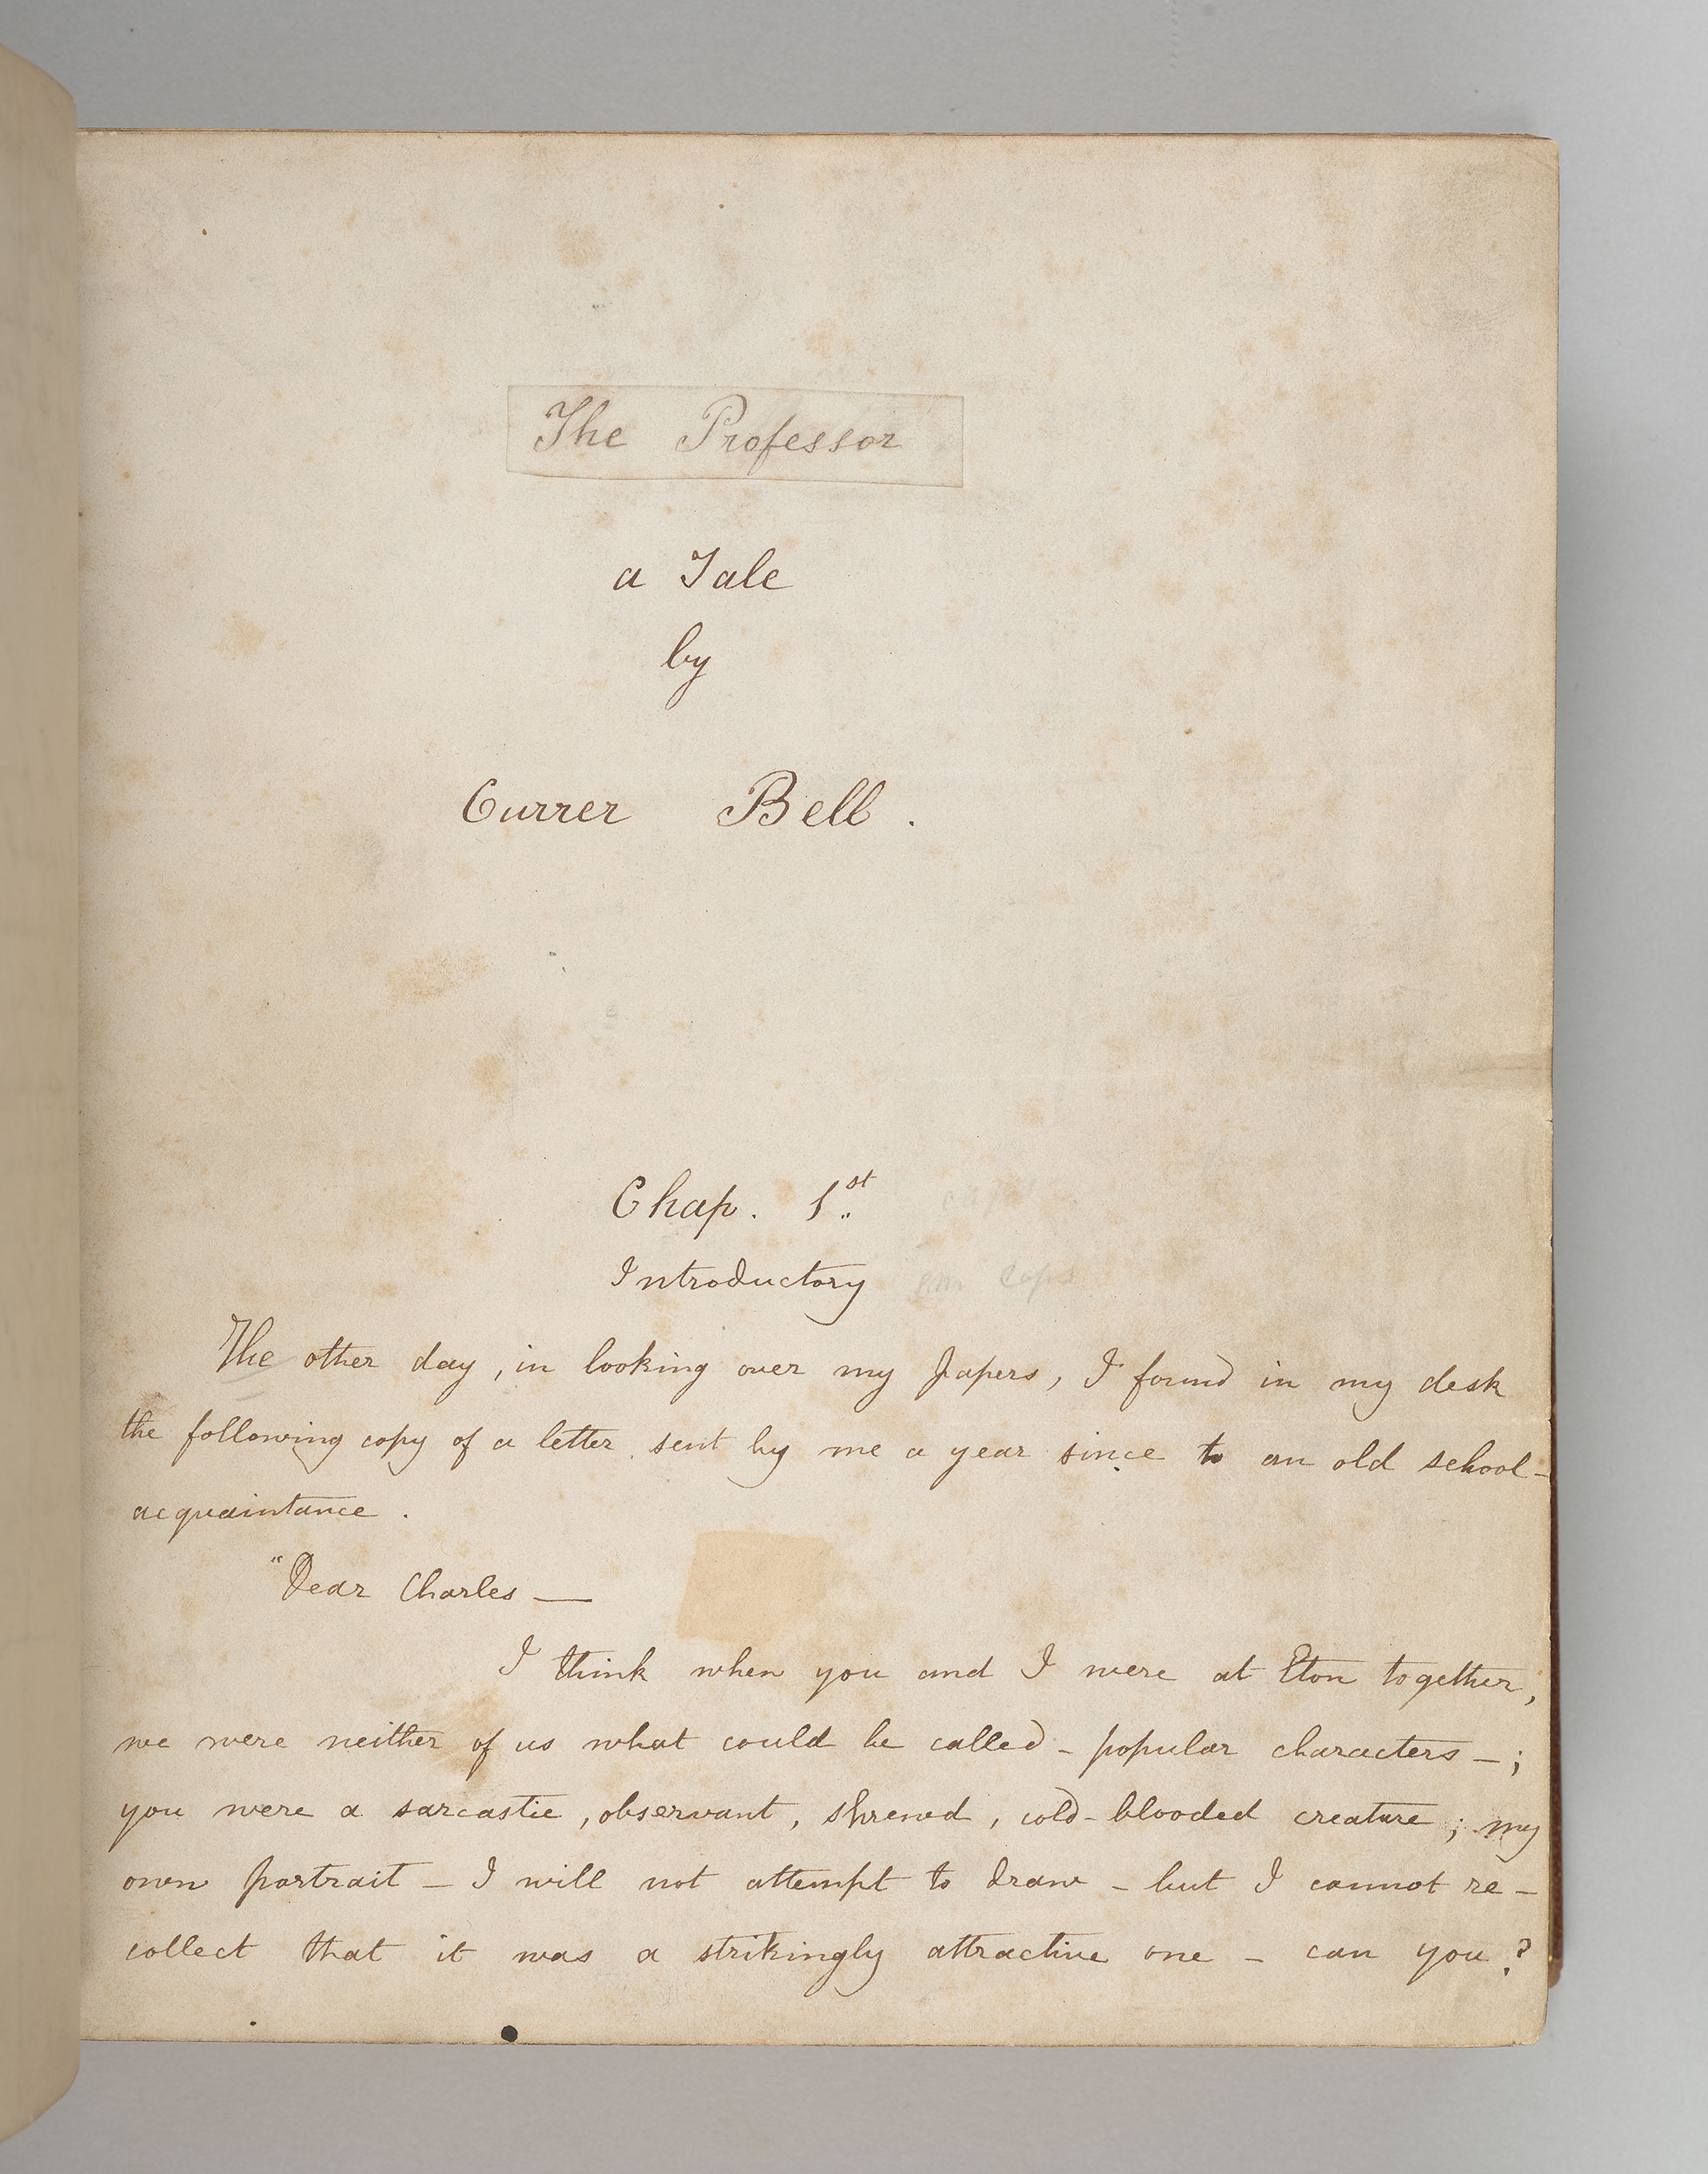 The Professor
a Tale
by
Currer Bell.
Chap. 1st
Introductory
The other day, in looking over my papers, I found in my desk
the following copy of a letter, sent by me a year since to an old school-
acquaintance.
"Dear Charles —
I think when you and I were at Eton together,
we were neither of us what could be called - popular characters -;
you were a sarcastic, observant, shrewd, cold-blooded creature; my
own portrait - I will not attempt to draw - but I cannot re-
collect that it was a strikingly attractive one - can you?